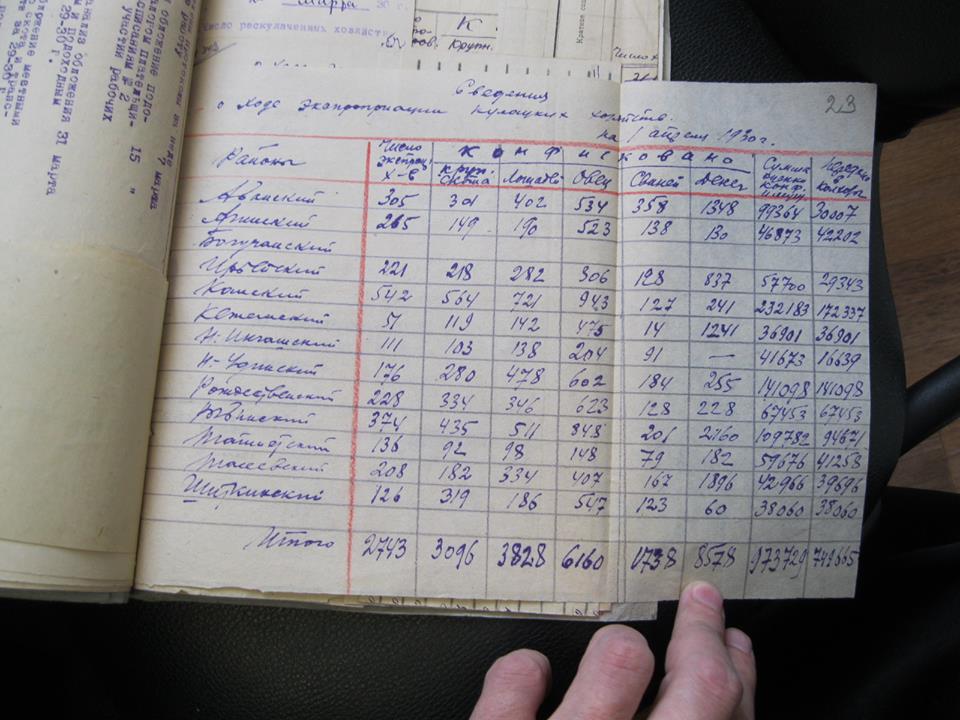 марта 30 г.
число раскулаченных хозяйств
К.
крупн.
Число х
участии рабочих 15 "
29-30 г.
23
Сведения
о ходе экспроприации кулацких хозяйств.
на 1 апреля 1930 г.
Районы Число экспропр. х-в Конфисковано Сумма оценки конф. имущ.
крупн. скота Лошадей Овец Свиней Денег
Абанский 305 301 402 534 358 1348 99364 30007
Агинский 265 149 190 523 138 130 46873 42202
Богучанский
Ирбейский 221 218 282 306 128 837 57700 29343
Канский 542 564 721 943 127 241 232183 172337
Кежемский 51 119 142 475 14 1241 36901 36901
Н-Ингашский 111 103 138 204 91 — 41673 16639
Н-Удинский 176 280 478 602 184 255 141098 141098
Рождественский 228 334 346 623 128 228 67453 67453
Рыбинский 374 435 511 848 201 2160 109782 94671
Тайшетский 136 92 98 148 79 182 59676 41258
Тасеевский 208 182 334 407 167 1896 42966 39696
Шиткинский 126 319 186 547 123 60 38060 38060
Итого 2743 3096 3828 6160 1738 8578 973729 749665